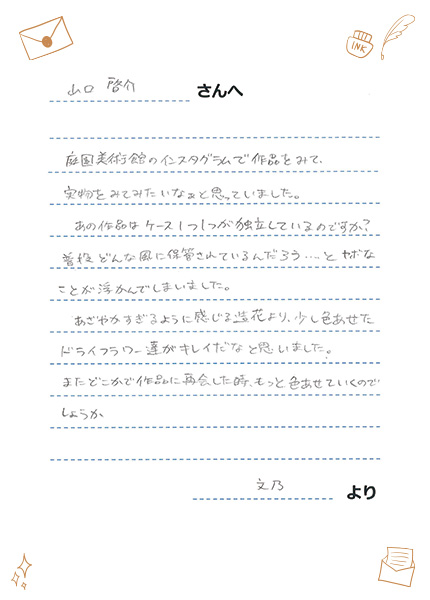 INK
山口 啓介 さんへ
庭園美術館のインスタグラムで作品をみて、
実物をみてみたいなぁと思っていました。
あの作品はケース1つ1つが独立しているのですか?
普段どんな風に保管されているんだろう……とヤボな
ことが浮かんでしまいました。
あざやかすぎるように感じる造花より、少し色あせた
ドライフラワー達がキレイだなと思いました。
またどこかで作品に再会した時、もっと色あせていくので
しょうか
文乃 より